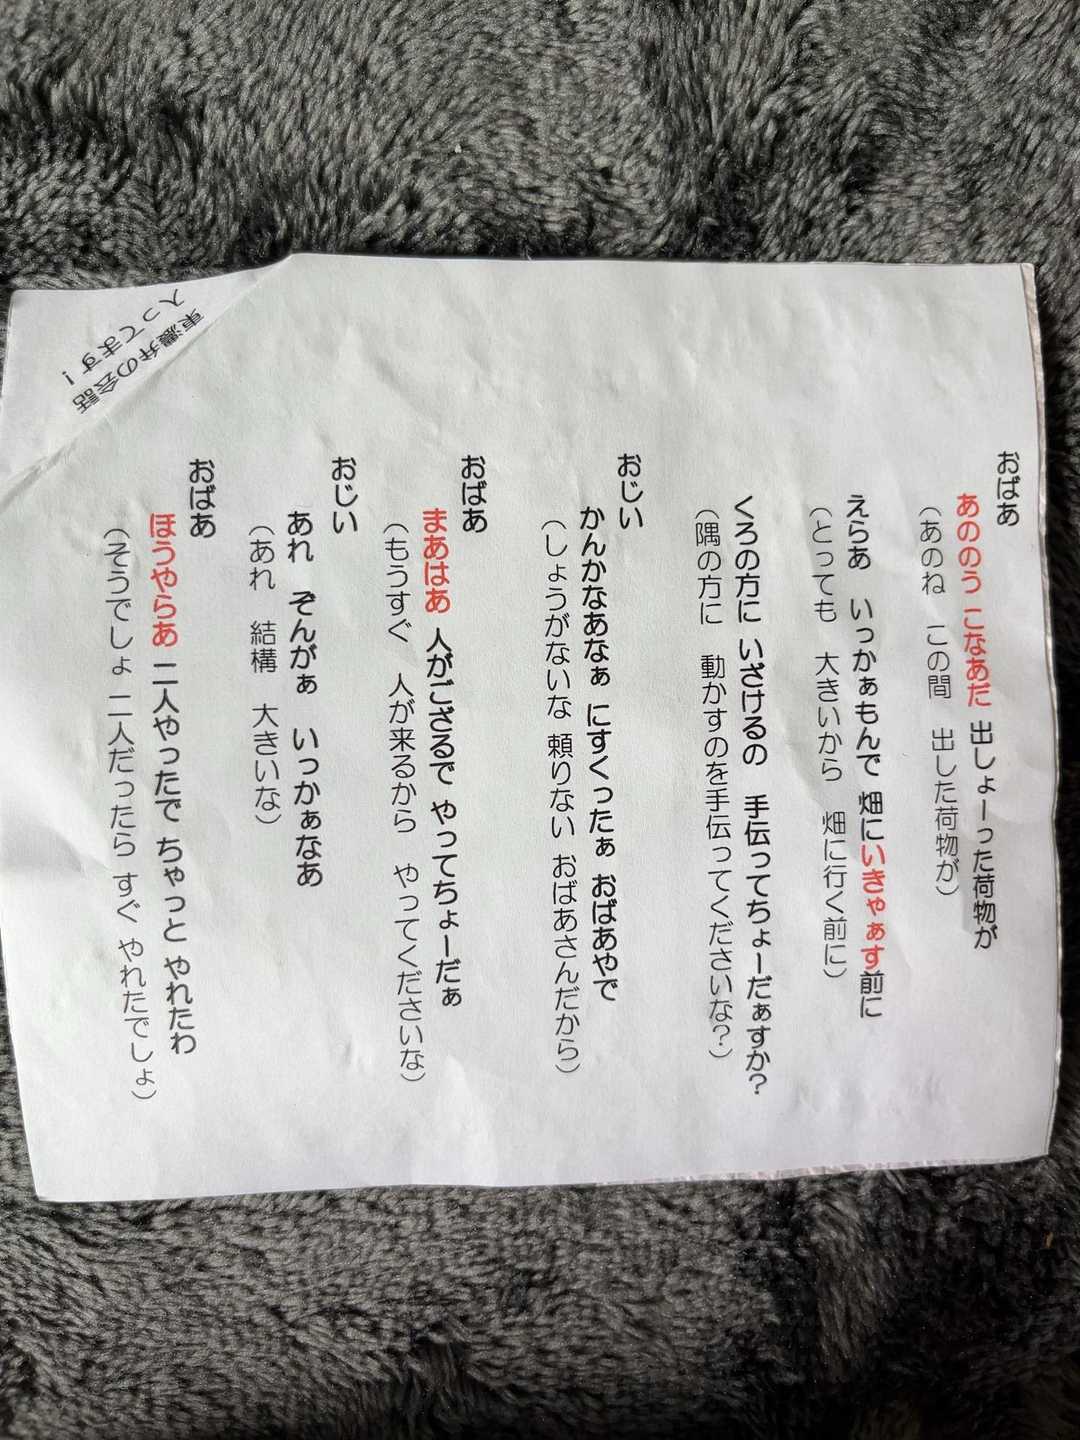 東濃弁の会話
入ってます！
おばあ
あののう こなあだ 出しょーった荷物が
（あのね この間 出した荷物が）
えらあ いっかぁもんで 畑にいきゃぁす前に
（とっても 大きいから 畑に行く前に）
くろの方に いざけるの 手伝ってちょーだぁすか？
（隅の方に 動かすのを手伝ってくださいな？）
おじい
かんかなあなぁ にすくったぁ おばあやで
（しょうがないな 頼りない おばあさんだから）
おばあ
まあはあ 人がござるで やってちょーだぁ
（もうすぐ 人が来るから やってくださいな）
おじい
あれ ぞんがぁ いっかぁなあ
（あれ 結構 大きいな）
おばあ
ほうやらあ 二人やったで ちゃっと やれたわ
（そうでしょ 二人だったら すぐ やれたでしょ）